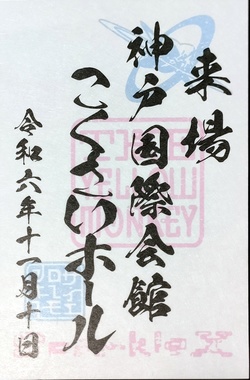 来場
神戸国際会館
こくさいホール
令和六年十一月十日
THE
YELLOW
MONKEY